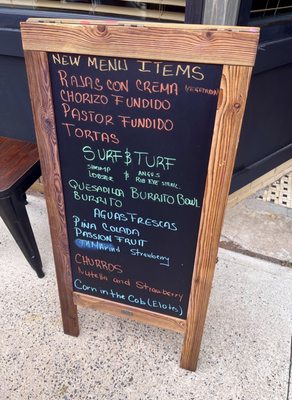 NEW MENU ITEMS
RAJAS CON CREMA (VEGETARIAN)
CHORIZO FUNDIDO
PASTOR FUNDIDO
TORTAS
SURF $ TURF
SHRIMP $ ANGUS
LOBSTER RIB EYE STEAK
QUESADILLA BURRITO BOWL
BURRITO
AGUAS FRESCAS
PINA COLADA
PASSION FRUIT
TAMARIND Strawberry
CHURROS
Nutella and Strawberry
Corn in the Cob (Elote)